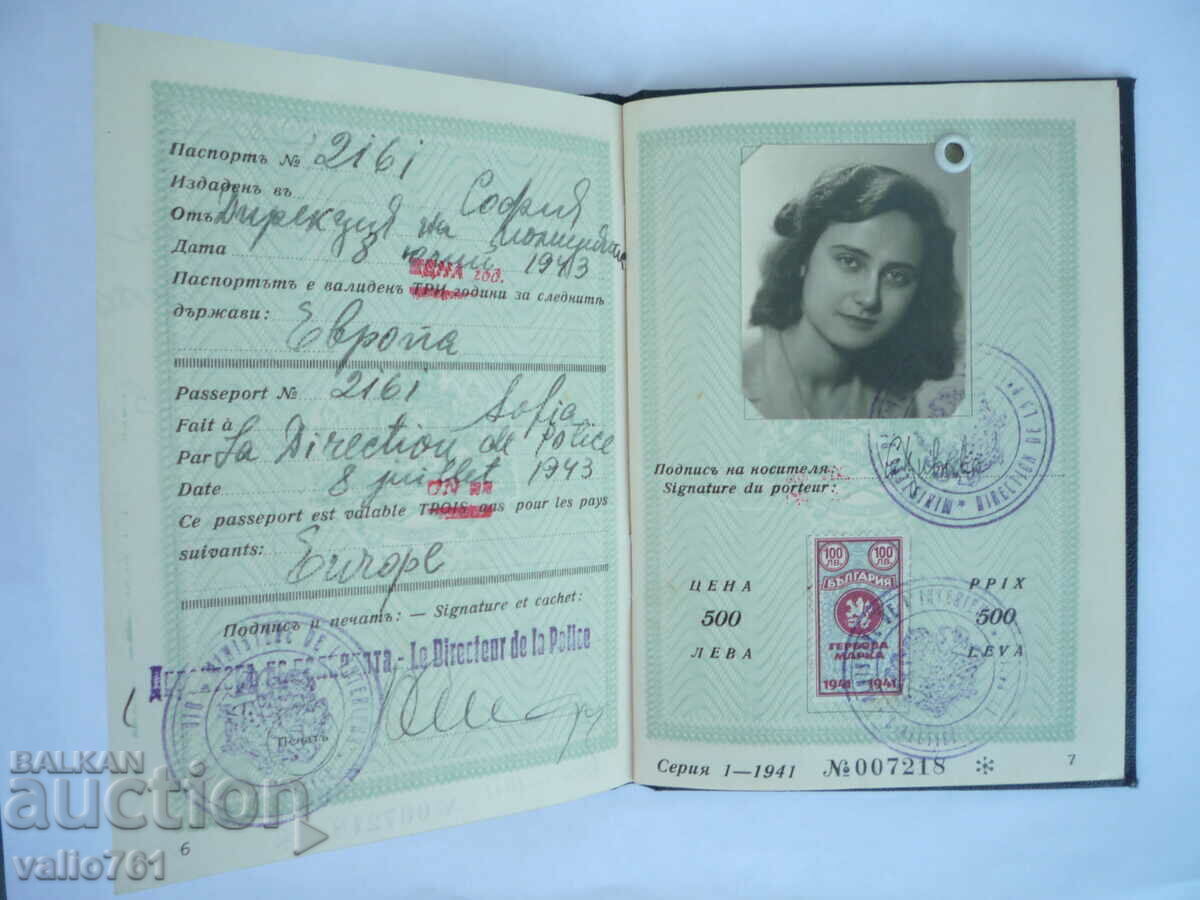 Паспортъ № 2161
Издаденъ въ София
Отъ Дирекция на полицията
Дата 8 юлий 1943
год.
Паспортътъ е валиденъ ТРИ години за следнитѣ
държави:
Европа
Passeport № 2161
Fait à Sofia
Par La Direction de Police
Date 8 juillet 1943
UN
Ce passeport est valable TROIS ans pour les pays
suivants:
Europe
Подпис и печатъ: — Signature et cachet:
Le Directeur de la Police
Печатъ
6
Подпись на носителя:
Signature du porteur:
100 ЛВ. 100 ЛВ.
БЪЛГАРИЯ
ГЕРБОВА
МАРКА
1941 1941
ЦЕНА
500
ЛЕВА
PPIX
500
LEVA
Серия 1—1941 №007218
7
BALKAN
auction
valio761